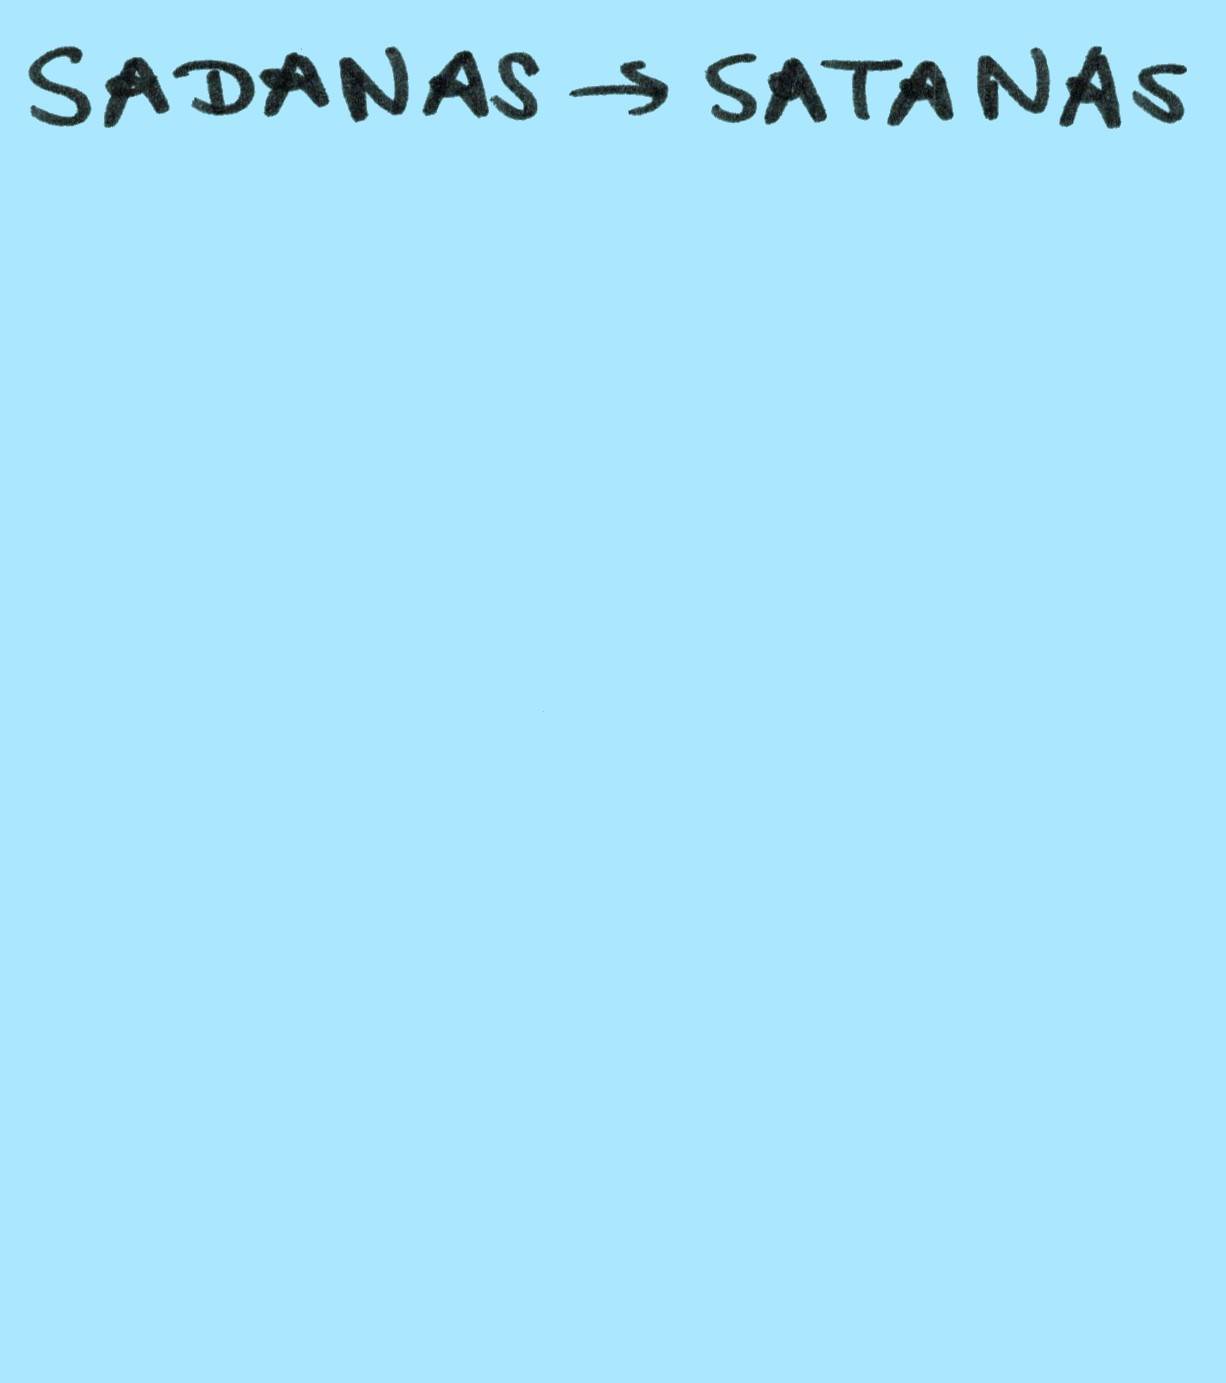 SADANAS → SATANAS